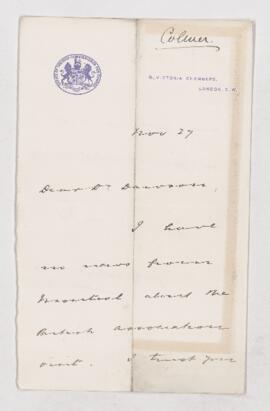 Colmer
9, VICTORIA CHAMBERS,
LONDON. S.W.
Nov 27
Dear Dr Dawson,
I have
no news from
Montreal about the
British Association
visit. I trust you